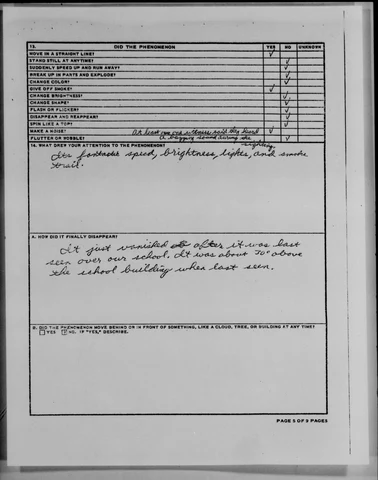 13. DID THE PHENOMENON YES NO UNKNOWN
MOVE IN A STRAIGHT LINE? ✓
STAND STILL AT ANYTIME? ✓
SUDDENLY SPEED UP AND RUN AWAY? ✓
BREAK UP IN PARTS AND EXPLODE? ✓
CHANGE COLOR? ✓
GIVE OFF SMOKE? ✓
CHANGE BRIGHTNESS? ✓
CHANGE SHAPE? ✓
FLASH OR FLICKER? ✓
DISAPPEAR AND REAPPEAR? ✓
SPIN LIKE A TOP? ✓
MAKE A NOISE? At least one witness said they heard ✓
FLUTTER OR WOBBLE? A buzzing sound during the ✓
sighting.
14. WHAT DREW YOUR ATTENTION TO THE PHENOMENON?
Its fantastic speed, brightness, lights, and smoke
trail.
A. HOW DID IT FINALLY DISAPPEAR?
It just vanished after it was last
seen over our school. It was about 70° above
the school building when last seen.
B. DID THE PHENOMENON MOVE BEHIND OR IN FRONT OF SOMETHING, LIKE A CLOUD, TREE, OR BUILDING AT ANY TIME?
YES NO. IF "YES," DESCRIBE.
PAGE 5 OF 9 PAGES